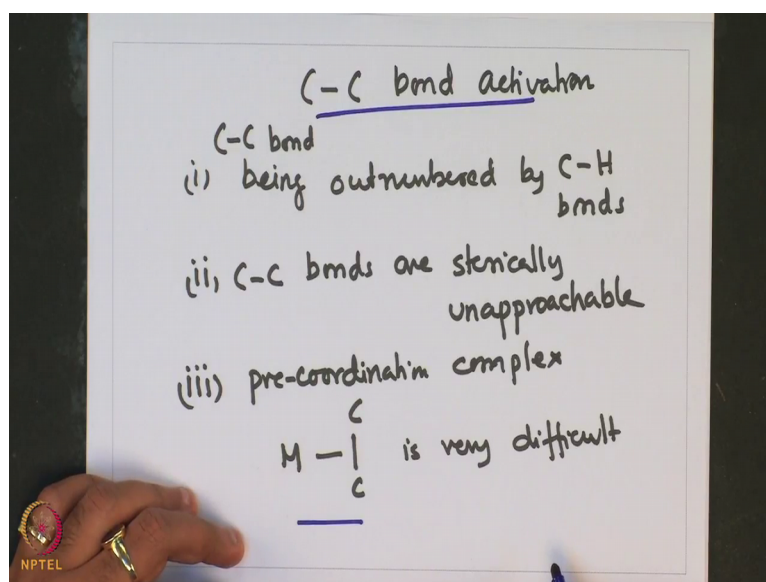 C-C bond activation
C-C bond
(i) being outnumbered by C-H
bonds
(ii) C-C bonds are sterically
unapproachable
(iii) pre-coordination complex
C
M - | is very difficult
C
NPTEL